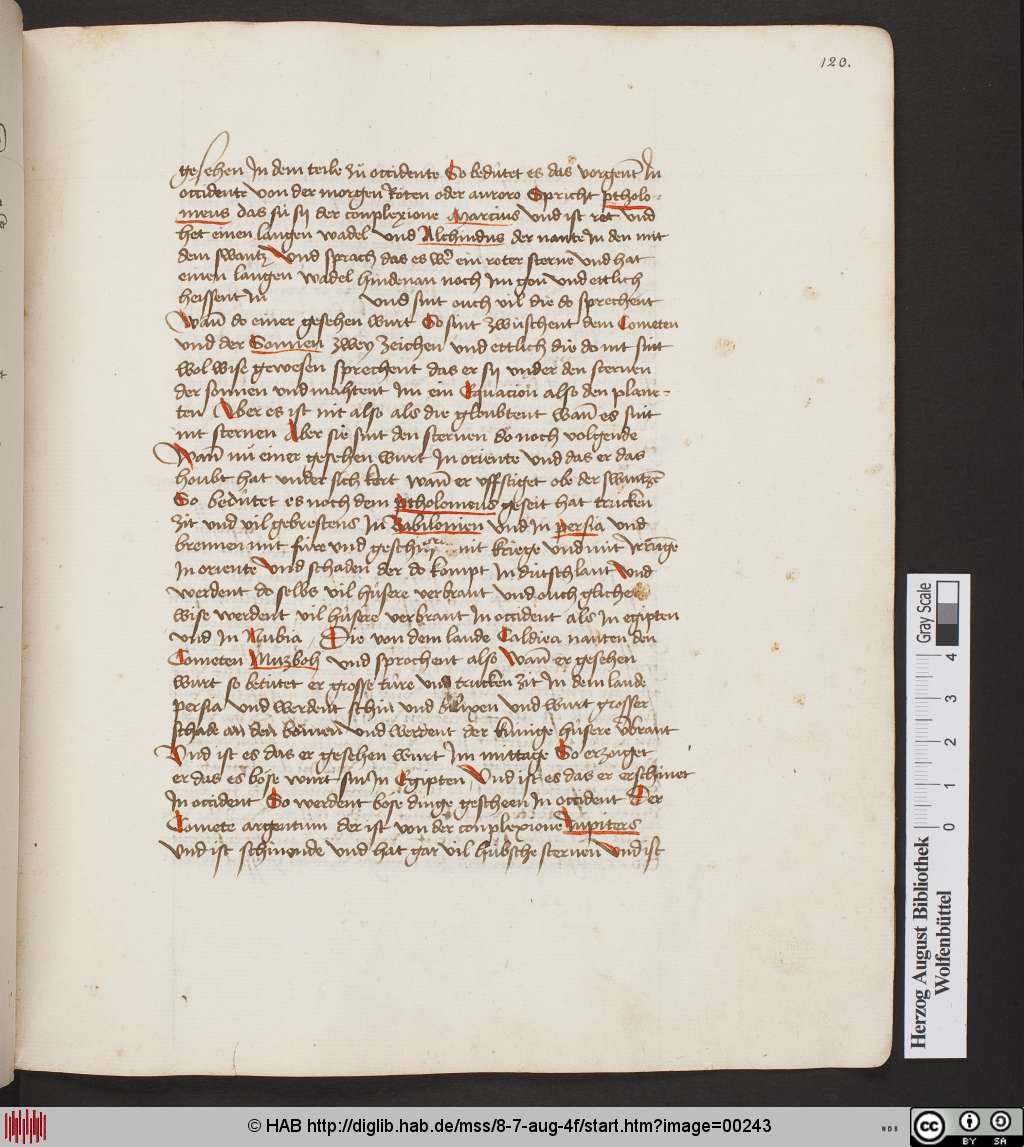 123.
gesehen In dem teile zů occidente So bedůtet es das vorgent In
occidente von der morgen Röten oder auroro Spricht ptholo-
meus das sú sÿ der conplexione Marcius und ist rot vnd
het einen langen wadel vnd Alchindus der nante In den mit
dem swantz Vnd sprach das es wer ein roter sterne vnd hat
einen langen wadel hindenan noch im gon vnd ettlich
heissent In vnd sint ouch vil die do sprechent
Wann do einer gesehen wurt So sint zwúschent dem Cometen
vnd der Sonnen zweÿ zeichen vnd ettlich die do nit sint
wol wise gewesen sprechent das er sÿ vnder den sternen
der sonnen vnd mahtent im ein Equacion also den plane-
ten Aber es ist nit also als die gloubtent wann es sint
nit sternen Aber sie sint den sternen do noch volgende
Wann nú einer gesehen wurt In oriente vnd das er das
houbt hat vnder sich kert wann er vffstiget obe der swantze
So bedútet es noch dem ptholomeus geseit hat trucken
zit vnd vil gebrestens In Babilonien vnd In persia vnd
brennen mit fúre vnd mit kriege vnd mit
In oriente Vnd schaden der do kompt In dútschlant Vnd
werdent do selbs vil húsere verbrant vnd ouch glicher
wise werdent vil húsere verbrant In occident als In egipten
vnd In Nubia Die von dem lande Caldiea nanten den
Cometen Mitzboh vnd sprochent also Wann er gesehen
wurt so betútet er grosse túre vnd trucken zit In dem lande
persia vnd werdent schin vnd blixen vnd wurt grosser
schade an den bömen vnd werdent der kúnige húsere verbrant
Vnd ist es das er gesehen wurt Im mittage So erzoiget
er das es böse wurt sin In Egipten Vnd ist es das er erschinet
In occident So werdent böse dinge gescheen In occident Der
Comete argentum der ist von der conplexione Jupiters
vnd ist schinende vnd hat gar vil húbsche sternen vnd ist
Gray Scale
0 1 2 3 4
Herzog August Bibliothek
Wolfenbüttel
© HAB http://diglib.hab.de/mss/8-7-aug-4f/start.htm?image=00243
WDB
cc BY SA